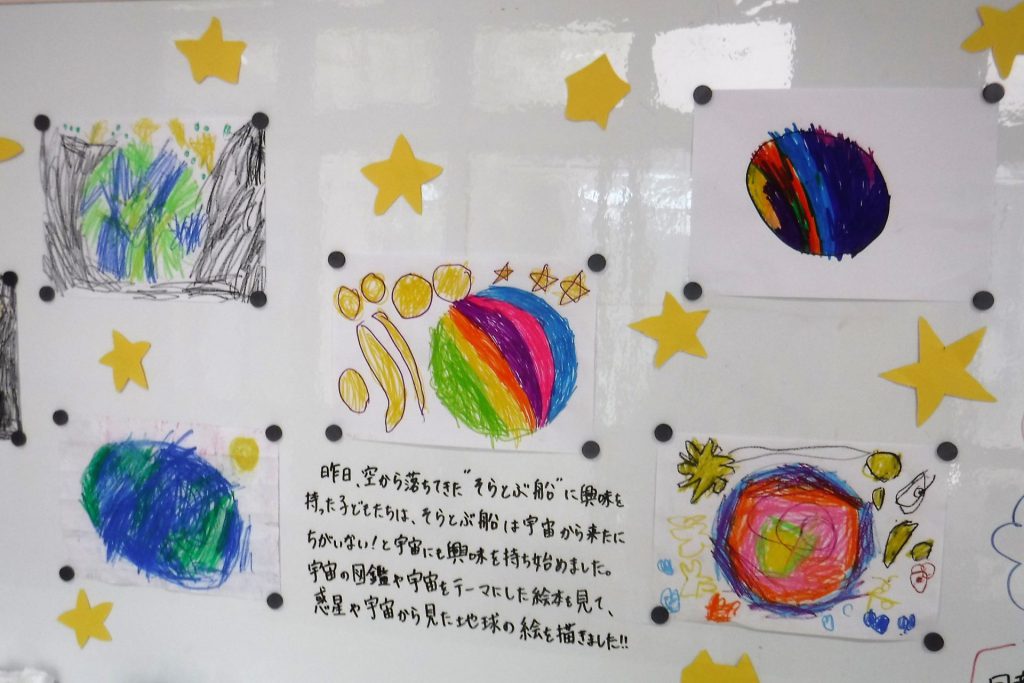 昨日、空から落ちてきた"そらとぶ船"に興味を
持った子どもたちは、そらとぶ船は宇宙から来たに
ちがいない!と宇宙にも興味を持ち始めました。
宇宙の図鑑や宇宙をテーマにした絵本を見て、
惑星や宇宙から見た地球の絵を描きました!!